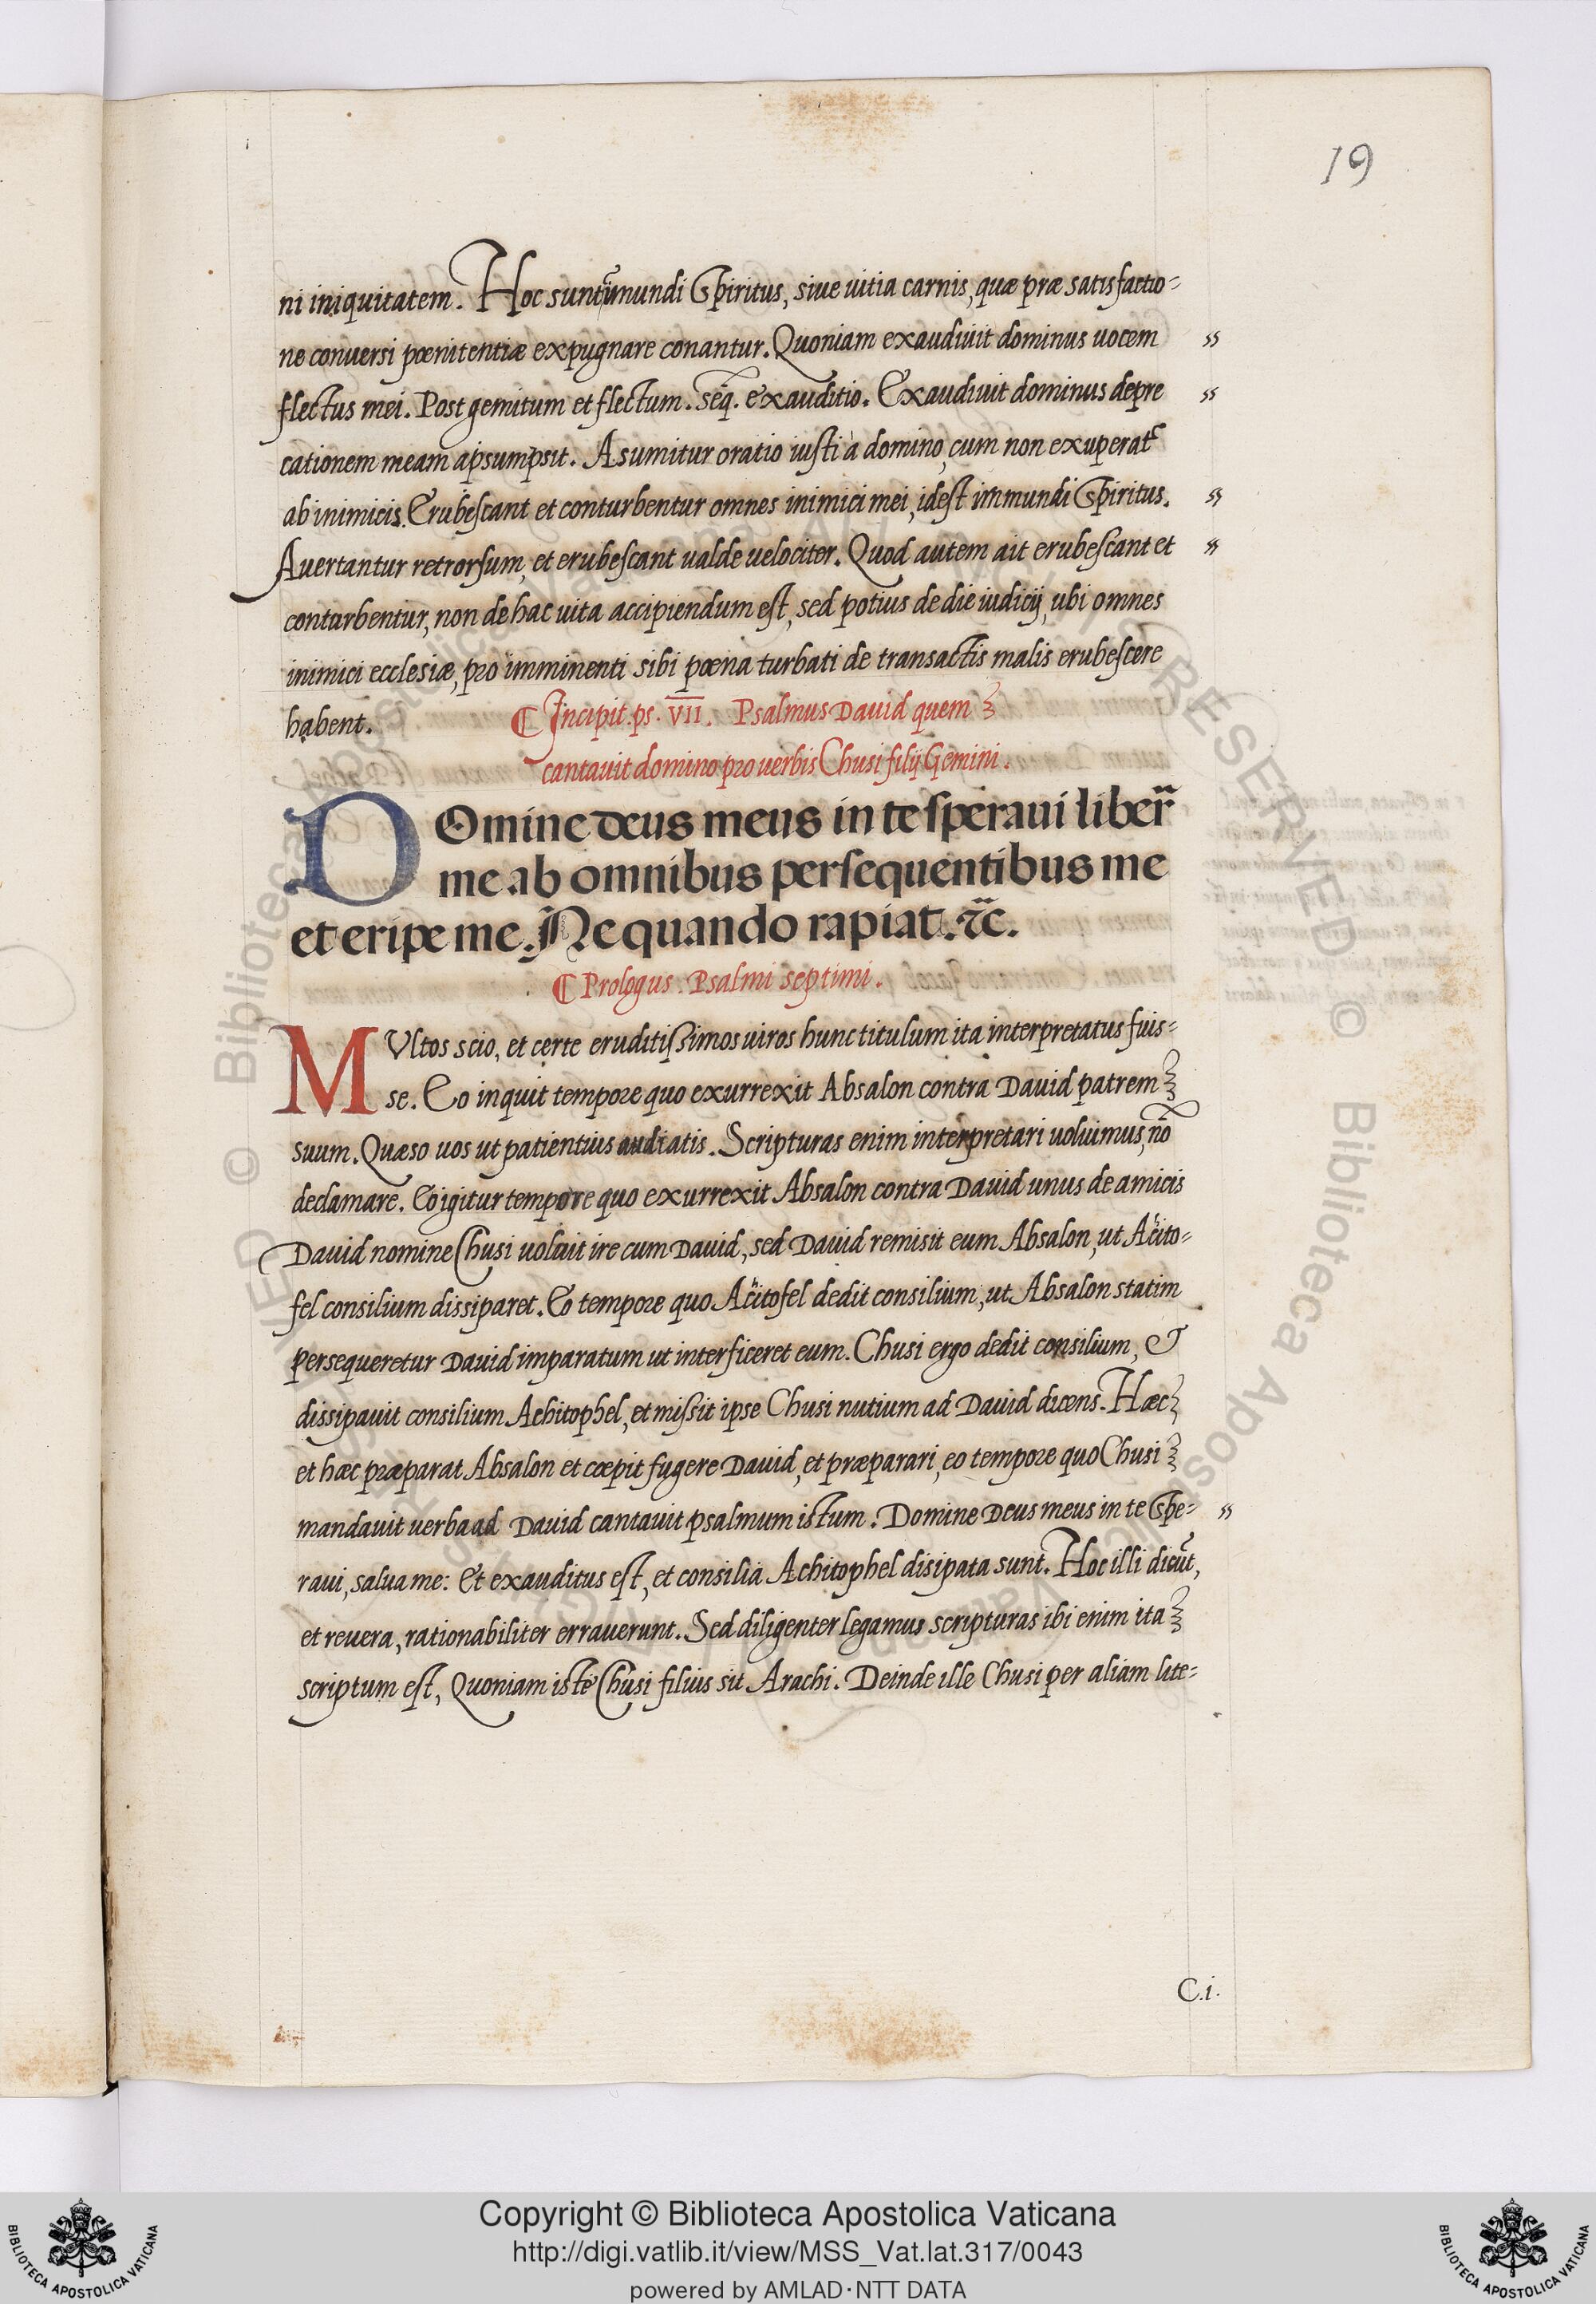 19
ni iniquitatem. Hoc sunt īmundi Spiritus, siue uitia carnis, quæ præ satisfactio-
ne conuersi pœnitentiæ expugnare conantur. Quoniam exaudiuit dominus uocem
flectus mei. Post gemitum et flectum. seq̄. exauditio. Exaudiuit dominus depre
cationem meam apsumpsit. Asumitur oratio iusti à domino, cum non exuperat᷒
ab inimicis. Erubescant et conturbentur omnes inimici mei, idest immundi Spiritus.
Auertantur retrorsum, et erubescant ualde uelociter. Quod autem ait erubescant et
conturbentur, non de hac uita accipiendum est, sed potius de die iudicij, ubi omnes
inimici ecclesiæ, pro imminenti sibi pœna turbati de transactis malis erubescere
habent. ¶ Incipit. ps. VII. Psalmus Dauid quem
cantauit domino pro uerbis Chusi filij Gemini.
DOmine deus meus in te speraui liber̄
me ab omnibus persequentibus me
et eripe me. Ne quando rapiat. &c.
¶ Prologus. Psalmi septimi.
MVltos scio, et certe eruditissimos uiros hunc titulum ita interpretatus fuis-
se. Eo inquit tempore quo exurrexit Absalon contra Dauid patrem
suum. Quæso uos ut patientius audiatis. Scripturas enim interpretari uoluimus, nō
declamare. Eo igitur tempore quo exurrexit Absalon contra Dauid unus de amicis
Dauid nomine Chusi uoluit ire cum Dauid, sed Dauid remisit eum Absalon, ut Acito-
fel consilium dissiparet. Eo tempore quo Acitofel dedit consilium, ut Absalon statim
persequeretur Dauid imparatum ut interficeret eum. Chusi ergo dedit consilium, &
dissipauit consilium Achitophel, et missit ipse Chusi nutium ad Dauid dicens. Hæc
et hæc præparat Absalon et cœpit fugere Dauid, et præparari, eo tempore quo Chusi
mandauit uerba ad Dauid cantauit psalmum istum. Domine Deus meus in te Spe-
raui, salua me: Et exauditus est, et consilia Achitophel disipata sunt. Hoc illi dicūt,
et reuera, rationabiliter errauerunt. Sed diligenter legamus scripturas ibi enim ita
scriptum est, Quoniam iste Chusi filius sit Arachi. Deinde ille Chusi per aliam lite-
C.i.
Copyright © Biblioteca Apostolica Vaticana
http://digi.vatlib.it/view/MSS_Vat.lat.317/0043
powered by AMLAD·NTT DATA
BIBLIOTECA APOSTOLICA VATICANA
BIBLIOTECA APOSTOLICA VATICANA